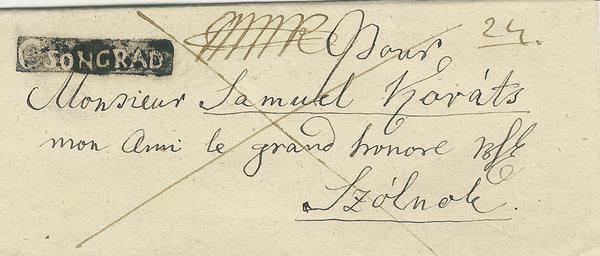 CSONGRAD
Pour 24.
Monsieur Samuel Kováts
mon Ami le grand honore
Szólnok.